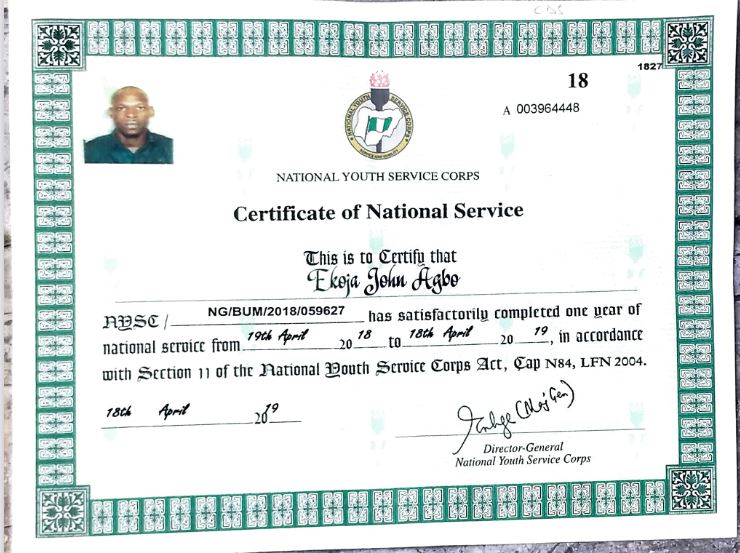 CDS
1827
18
A 003964448
NATIONAL YOUTH SERVICE CORPS
SERVICE AND HUMILITY
NATIONAL YOUTH SERVICE CORPS
Certificate of National Service
This is to Certify that
Ekoja John Agbo
NYSC/ NG/BUM/2018/059627 has satisfactorily completed one year of
national service from 19th April 20 18 to 18th April 20 19, in accordance
with Section 11 of the National Youth Service Corps Act, Cap N84, LFN 2004.
18th April 2019
(Maj Gen)
Director-General
National Youth Service Corps